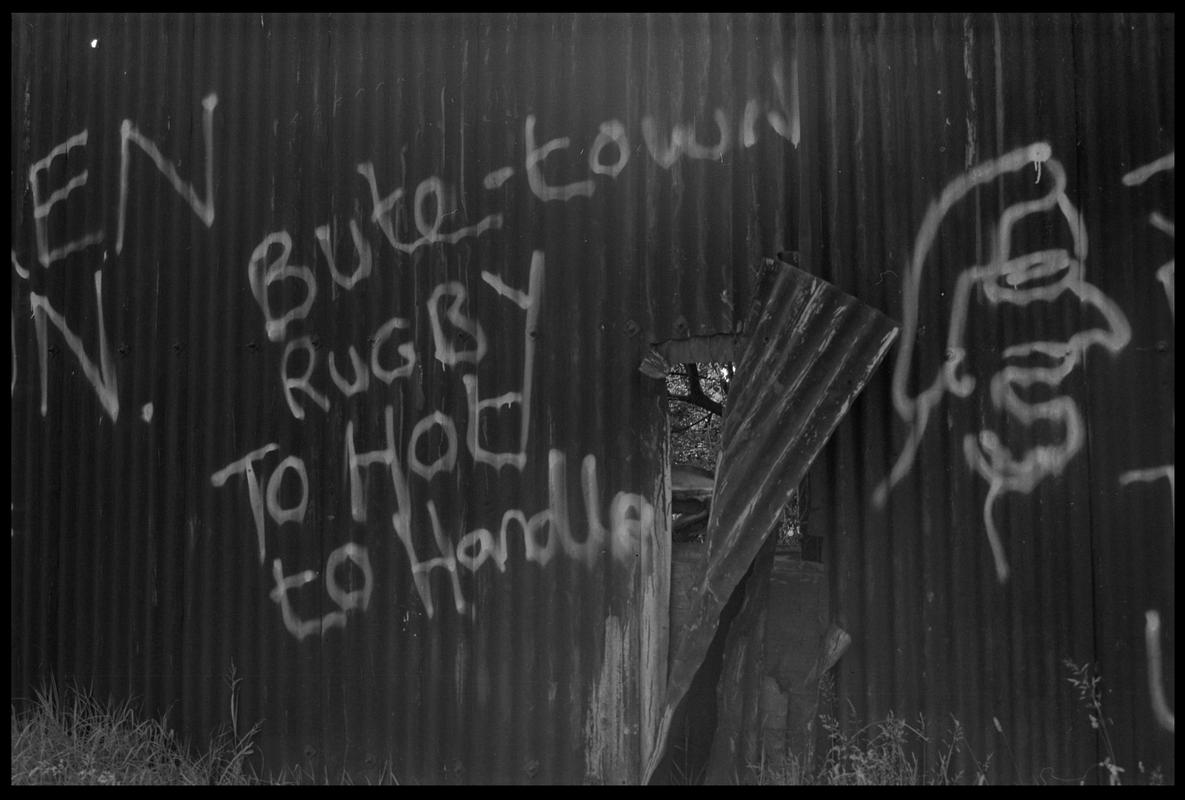 EN
N.
Bute-town
RUGBY
To Hot
to Handle